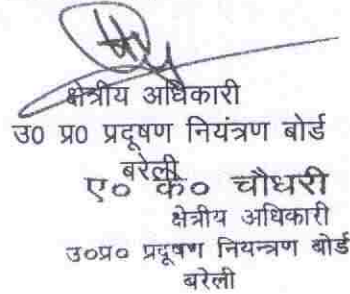 क्षेत्रीय अधिकारी
उ0 प्र0 प्रदूषण नियंत्रण बोर्ड
बरेली
ए० के० चौधरी
क्षेत्रीय अधिकारी
उ०प्र० प्रदूषण नियन्त्रण बोर्ड
बरेली